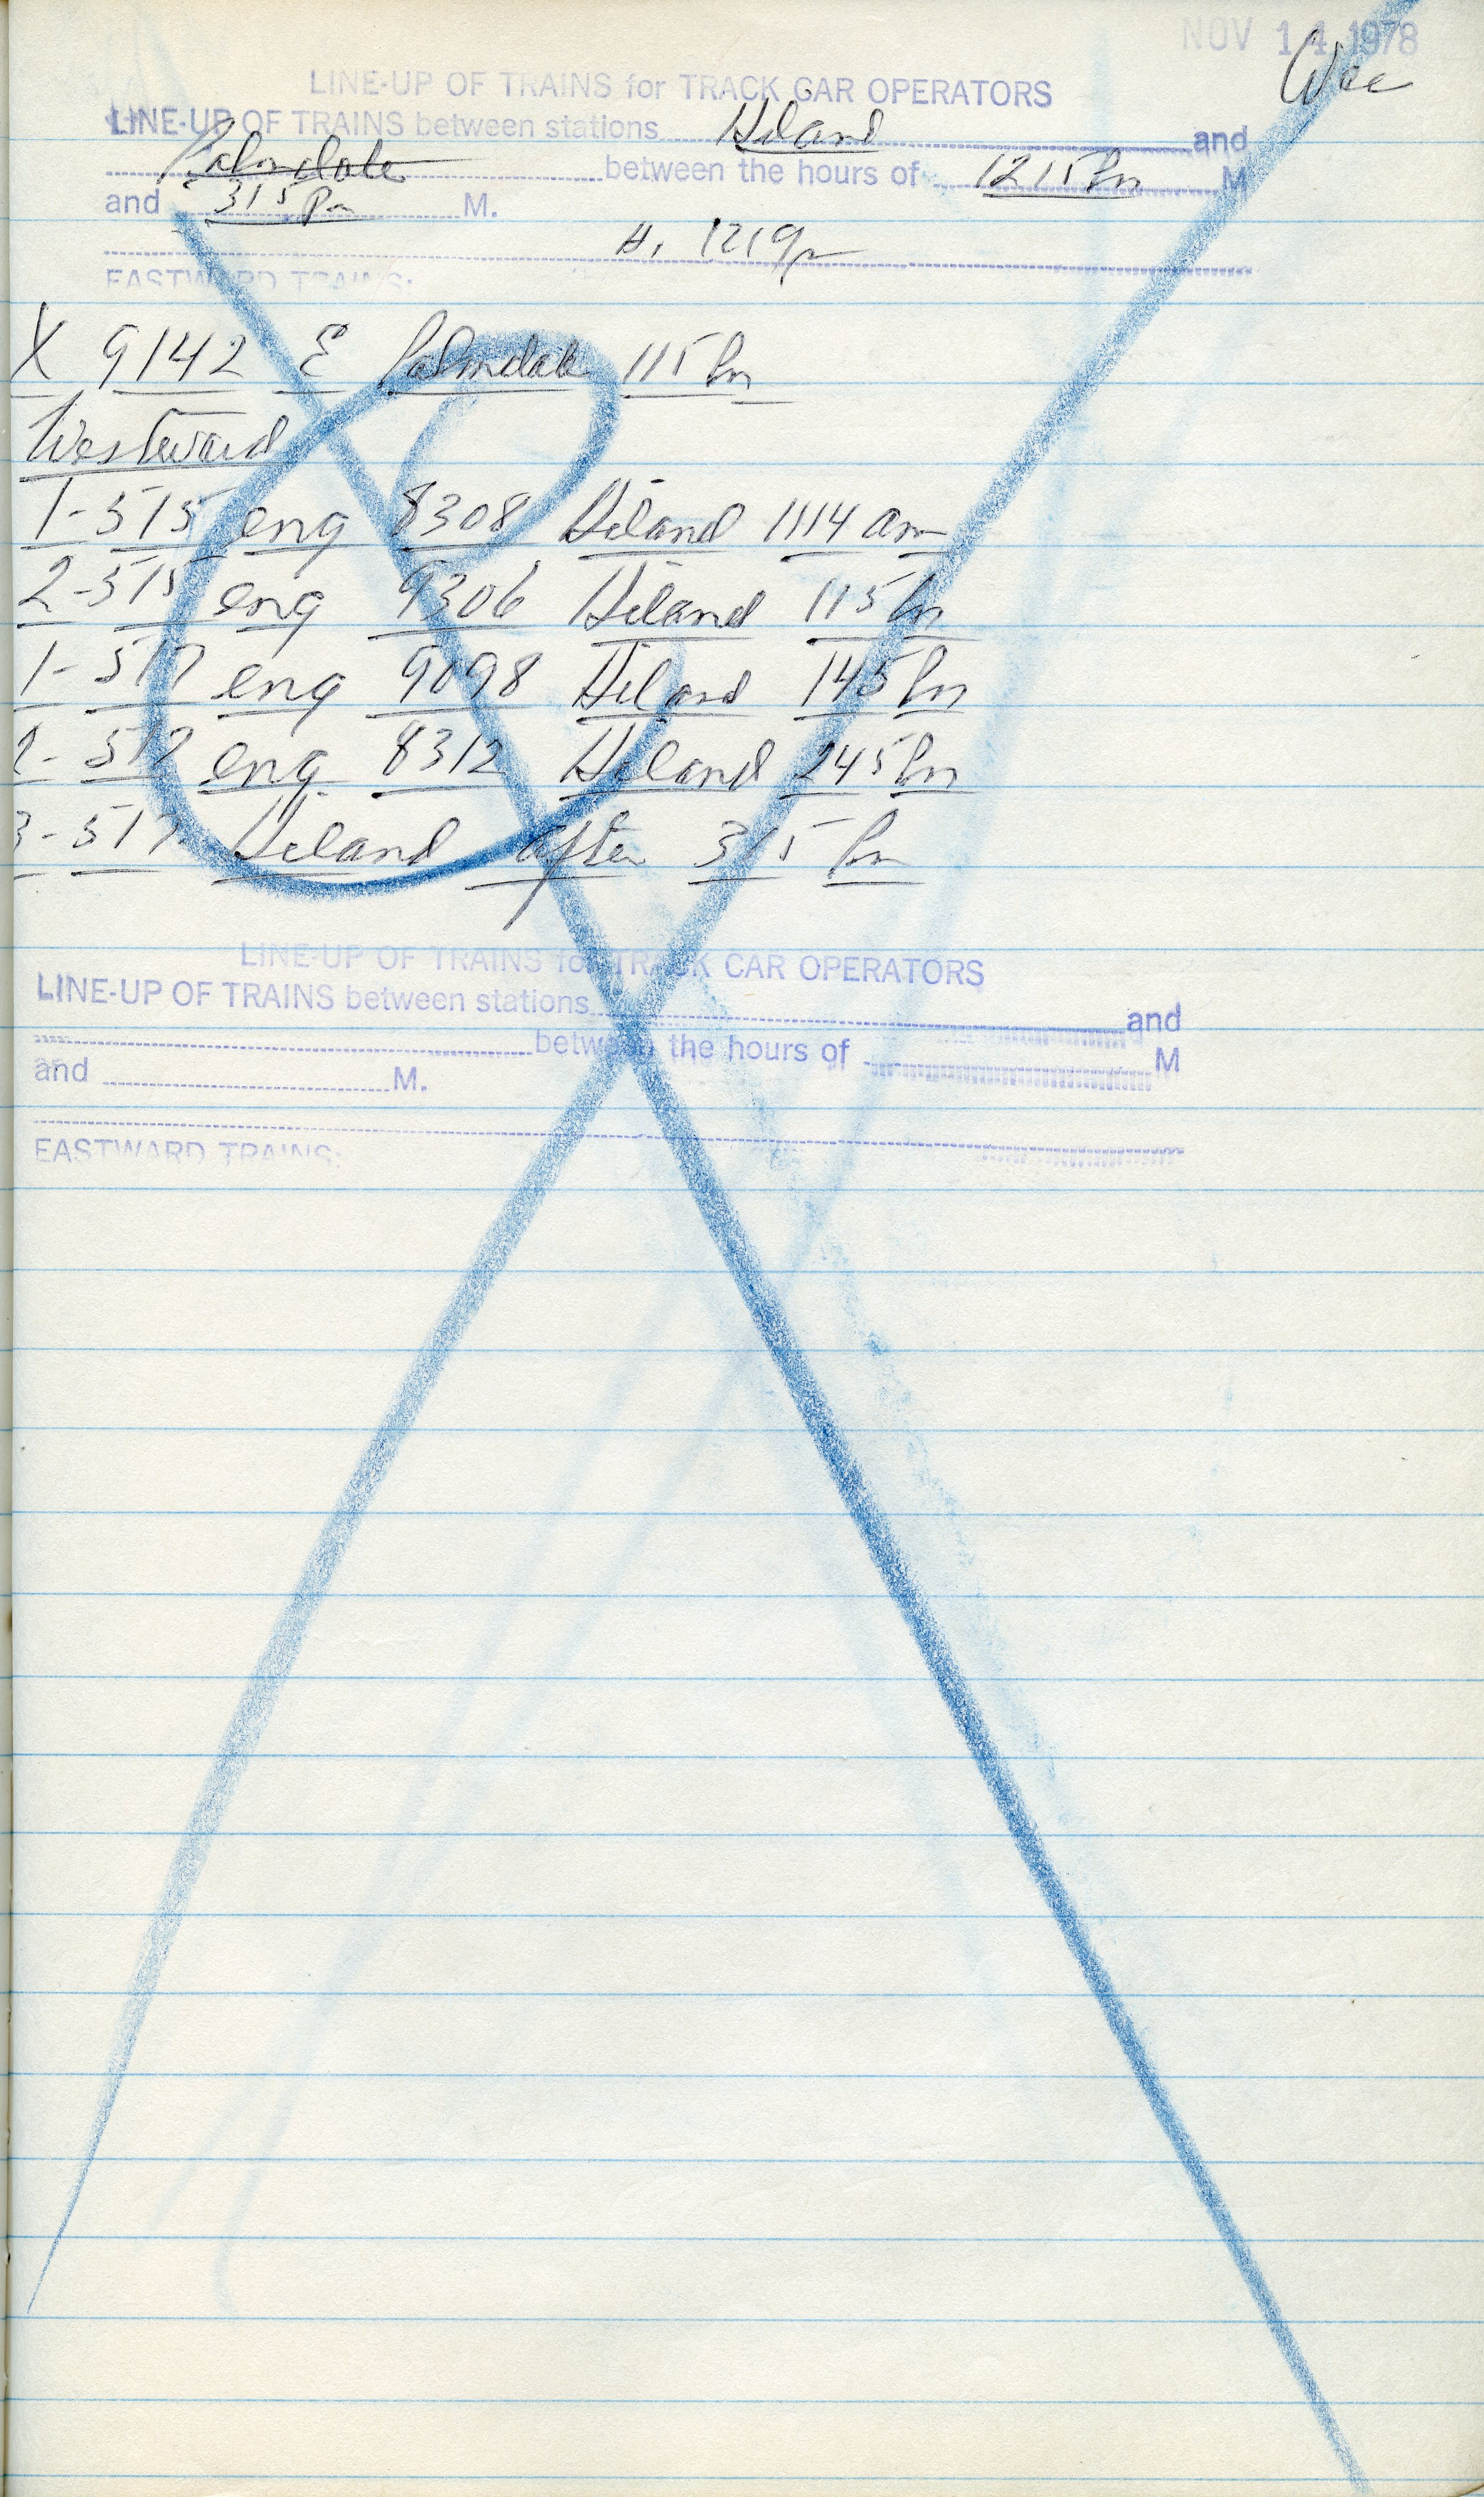 NOV 14 1978
LINE-UP OF TRAINS for TRACK CAR OPERATORS
LINE-UP OF TRAINS between stations Hiland and
Palmdale between the hours of 1215 Pm M
and 315 Pm M.
1219 Pm
EASTWARD TRAINS:
X 9142 E Palmdale 115 Pm
Westward
1-515 eng 8308 Hiland 1114 am
2-515 eng 9306 Hiland 115 Pm
1-517 eng 9098 Hiland 145 Pm
2-517 eng 8312 Hiland 245 Pm
3-517 Hiland after 315 Pm
LINE-UP OF TRAINS for TRACK CAR OPERATORS
LINE-UP OF TRAINS between stations and
between the hours of M
and M.
EASTWARD TRAINS: